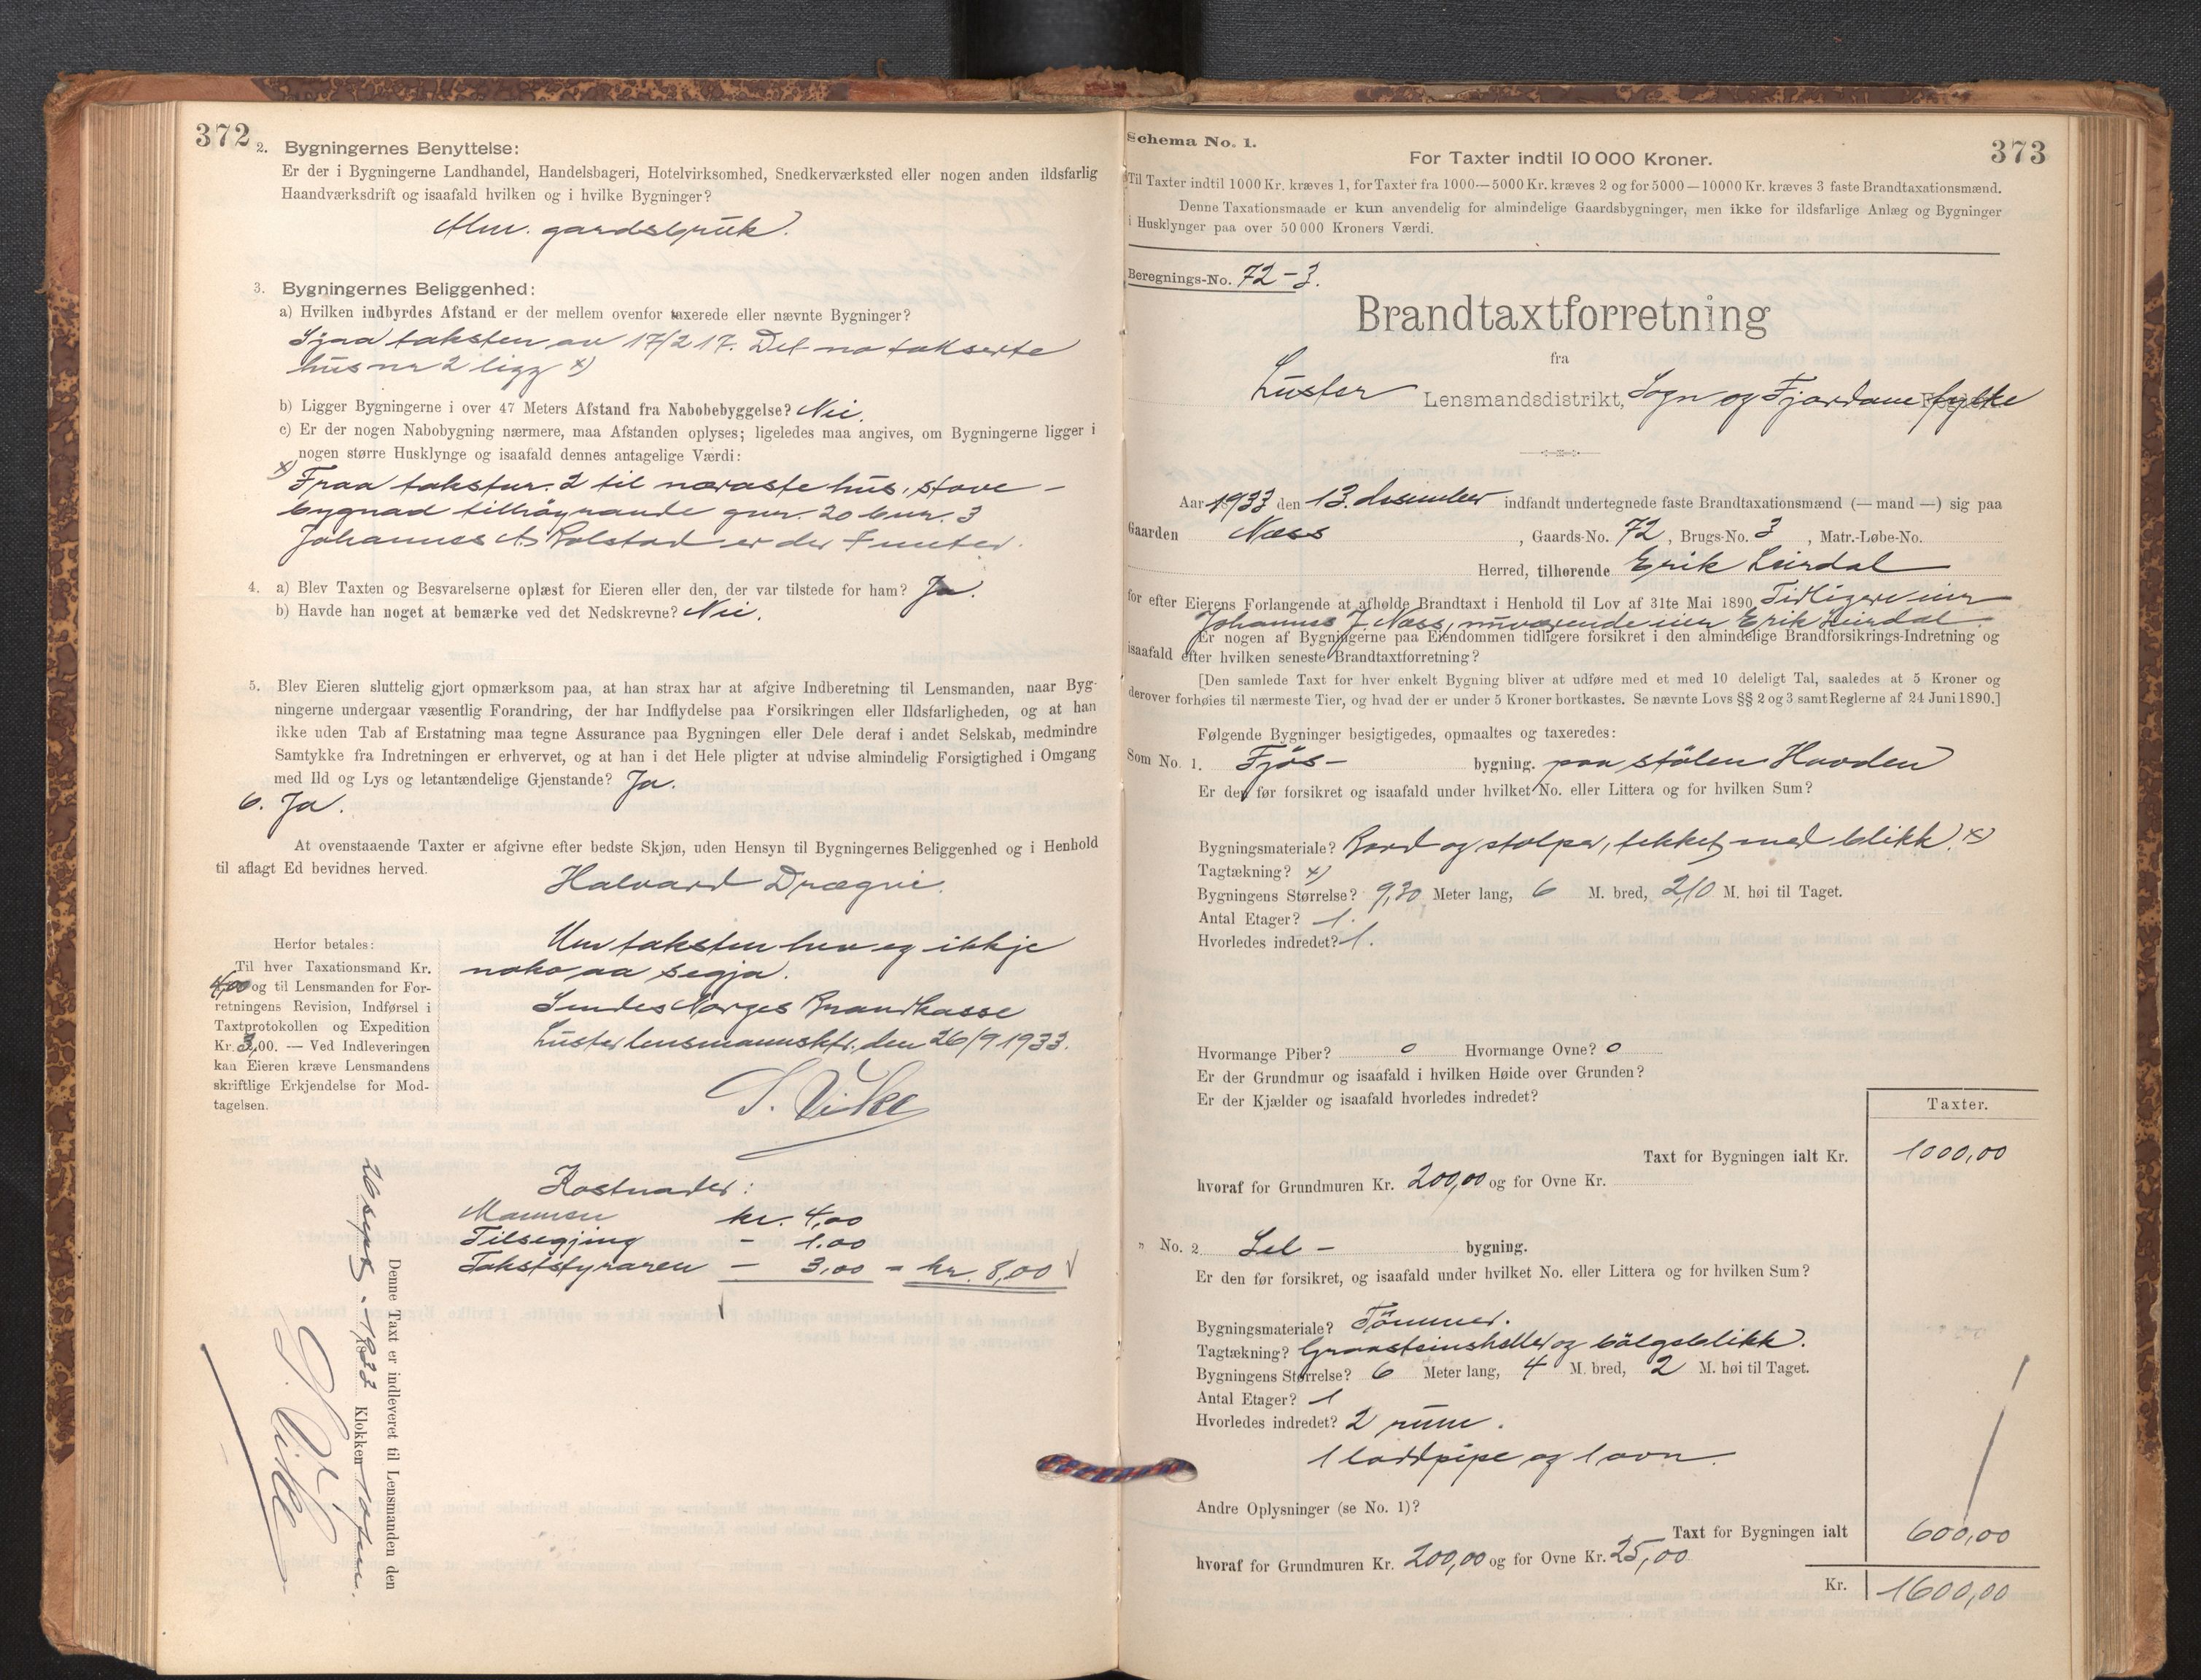 372
2. Bygningernes Benyttelse:
Er der i Bygningerne Landhandel, Handelsbageri, Hotelvirksomhed, Snedkerværksted eller nogen anden ildsfarlig
Haandværksdrift og isaafald hvilken og i hvilke Bygninger?
Alm. gardsbruk.
3. Bygningernes Beliggenhed:
a) Hvilken indbyrdes Afstand er der mellem ovenfor taxerede eller nævnte Bygninger?
Sjaa taksten av 17/2 17. Det no takserte
hus nr 2 ligg x)
b) Ligger Bygningerne i over 47 Meters Afstand fra Nabobebyggelse? Nei.
c) Er der nogen Nabobygning nærmere, maa Afstanden oplyses; ligeledes maa angives, om Bygningerne ligger i
nogen større Husklynge og isaafald dennes antagelige Værdi:
x) Fraa takstnr. 2 til næraste hus, stove-
bygnad tilhøyrande gnr. 20 bnr. 3
Johannes A. Rolstad er der 7 meter.
4. a) Blev Taxten og Besvarelserne oplæst for Eieren eller den, der var tilstede for ham? Ja.
b) Havde han noget at bemærke ved det Nedskrevne? Nei.
5. Blev Eieren sluttelig gjort opmærksom paa, at han strax har at afgive Indberetning til Lensmanden, naar Byg-
ningerne undergaar væsentlig Forandring, der har Indflydelse paa Forsikringen eller Ildsfarligheden, og at han
ikke uden Tab af Erstatning maa tegne Assurance paa Bygningen eller Dele deraf i andet Selskab, medmindre
Samtykke fra Indretningen er erhvervet, og at han i det Hele pligter at udvise almindelig Forsigtighed i Omgang
med Ild og Lys og letantændelige Gjenstande? Ja.
6. Ja.
At ovenstaaende Taxter er afgivne efter bedste Skjøn, uden Hensyn til Bygningernes Beliggenhed og i Henhold
til aflagt Ed bevidnes herved.
Halvard Drægni.
Um taksten hev eg ikkje
noko aa segja.
Sendes Norges Brandkasse
Luster lensmannsktr. den 26/9 1933.
S. Vike
Herfor betales:
Til hver Taxationsmand Kr.
4,00 og til Lensmanden for For-
retningens Revision, Indførsel i
Taxtprotokollen og Expedition
Kr. 3,00. — Ved Indleveringen
kan Eieren kræve Lensmandens
skriftlige Erkjendelse for Mod-
tagelsen.
Kostnader:
Mannen kr. 4,00
Tilsegjing - 1.00
Takststyraren - 3,00 = kr. 8,00
Denne Taxt er indleveret til Lensmanden den
26 septb. 1933 Klokken
S. Vike
373
Schema No. 1.
For Taxter indtil 10 000 Kroner.
Til Taxter indtil 1000 Kr. kræves 1, for Taxter fra 1000—5000 Kr. kræves 2 og for 5000—10000 Kr. kræves 3 faste Brandtaxationsmænd.
Denne Taxationsmaade er kun anvendelig for almindelige Gaardsbygninger, men ikke for ildsfarlige Anlæg og Bygninger
i Husklynger paa over 50 000 Kroners Værdi.
Beregnings-No. 72-3.
Brandtaxtforretning
fra
Luster Lensmandsdistrikt, Sogn og Fjordane fylke
Aar 1933 den 13. desember indfandt undertegnede faste Brandtaxationsmænd (—mand—) sig paa
Gaarden Næss, Gaards-No. 72, Brugs-No. 3, Matr.-Løbe-No.
Herred, tilhørende Erik Leirdal
for efter Eierens Forlangende at afholde Brandtaxt i Henhold til Lov af 31te Mai 1890. Tidligere eier
Johannes J. Næss, nuværende eier Erik Leirdal.
Er nogen af Bygningerne paa Eiendommen tidligere forsikret i den almindelige Brandforsikrings-Indretning og
isaafald efter hvilken seneste Brandtaxtforretning?
[Den samlede Taxt for hver enkelt Bygning bliver at udføre med et med 10 deleligt Tal, saaledes at 5 Kroner og
derover forhøies til nærmeste Tier, og hvad der er under 5 Kroner bortkastes. Se nævnte Lovs §§ 2 og 3 samt Reglerne af 24 Juni 1890.]
Følgende Bygninger besigtigedes, opmaaltes og taxeredes:
Som No. 1. Fjös- bygning. paa stölen Havden
Er den før forsikret og isaafald under hvilket No. eller Littera og for hvilken Sum?
Bygningsmateriale? Bord og stolper, tekket med blikk. x)
Tagtækning? x)
Bygningens Størrelse? 9,30 Meter lang, 6 M. bred, 2,10 M. høi til Taget.
Antal Etager? 1.
Hvorledes indredet? 1.
Hvormange Piber? 0 Hvormange Ovne? 0
Er der Grundmur og isaafald i hvilken Høide over Grunden?
Er der Kjælder og isaafald hvorledes indredet?
Taxter.
Taxt for Bygningen ialt Kr. 1000,00
hvoraf for Grundmuren Kr. 200,00 og for Ovne Kr.
" No. 2 Sel- bygning.
Er den før forsikret, og isaafald under hvilket No. eller Littera og for hvilken Sum?
Bygningsmateriale? Tömmer.
Tagtækning? Graasteinsheller og bölgeblikk.
Bygningens Størrelse? 6 Meter lang, 4 M. bred, 2 M. høi til Taget.
Antal Etager? 1
Hvorledes indredet? 2 rum.
1 loddpipe og 1 ovn.
Andre Oplysninger (se No. 1)?
Taxt for Bygningen ialt 600,00
hvoraf for Grundmuren Kr. 200,00 og for Ovne Kr. 25,00
Kr. 1600,00